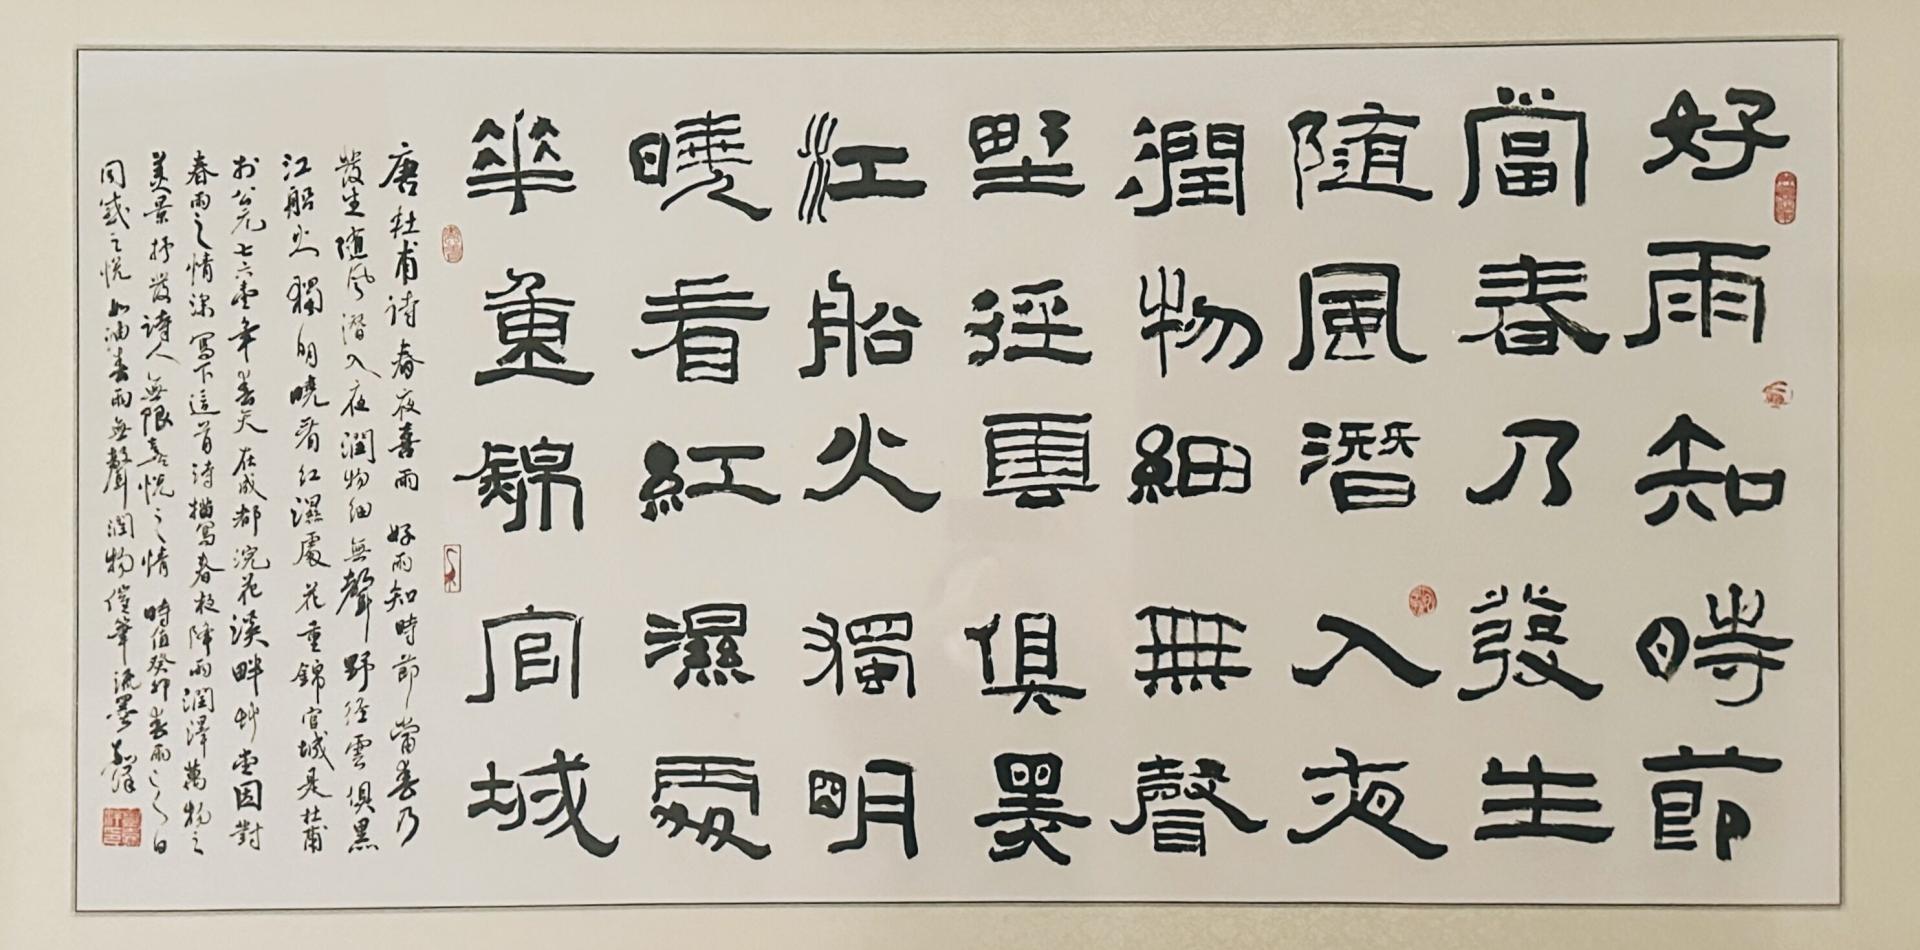 好雨知時節
當春乃發生
隨風潛入夜
潤物細無聲
野徑雲俱黑
江船火獨明
曉看紅濕處
華重錦官城
唐杜甫詩春夜喜雨 好雨知時節當春乃
發生隨風潛入夜潤物細無聲野徑雲俱黑
江船火獨明曉看紅濕處花重錦官城是杜甫
於公元七六壹年春天在成都浣花溪畔草堂因對
春雨之情深寫下這首詩描寫春夜降雨潤澤萬物之
美景抒發詩人無限喜悅之情 時值癸卯春雨之日
同感之悅如油春雨無聲潤物催筆流墨